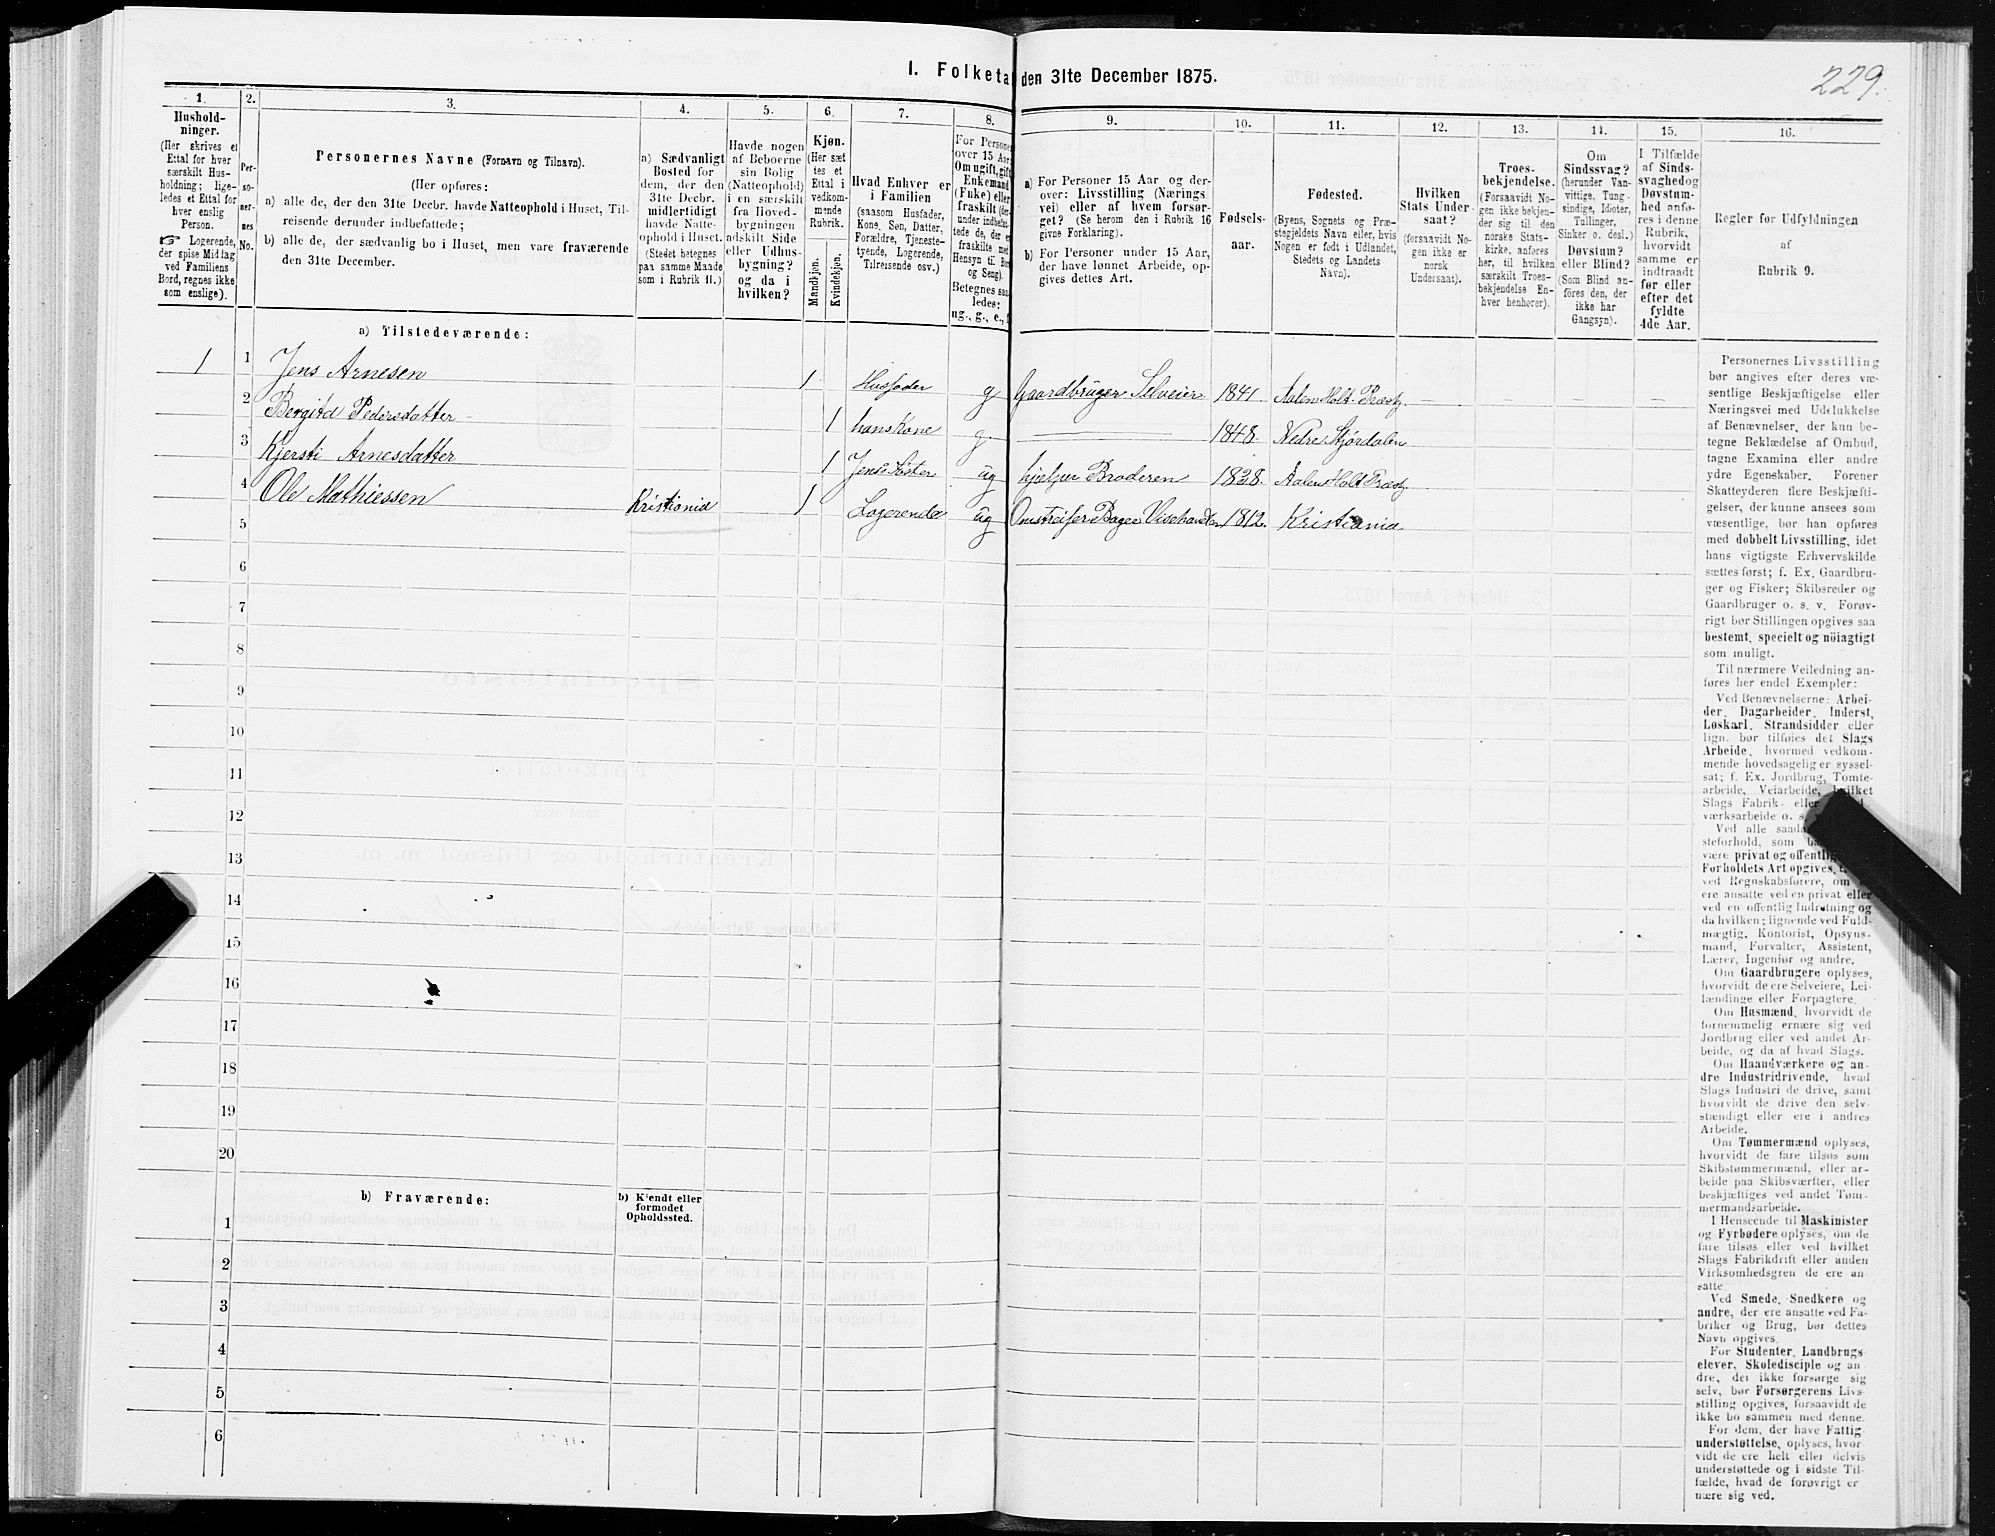 229.
I. Folketa den 31te December 1875.
1.
Hushold-
ninger.
(Her skrives et
Ettal for hver
særskilt Hus-
holdning; lige-
ledes et Ettal for
hver enslig
Person.
Logerende,
der spise Middag
ved Familiens
Bord, regnes ikke
som enslige).
2.
Per-
so-
ner-
nes
No.
3.
Personernes Navne (Fornavn og Tilnavn).
(Her opføres:
a) alle de, der den 31te Decbr. havde Natteophold i Huset, Til-
reisende derunder indbefattede;
b) alle de, der sædvanlig bo i Huset, men vare fraværende
den 31te December.
4.
a) Sædvanligt
Bosted for
dem, der den
31te Decbr.
midlertidigt
havde Natte-
ophold i Huset.
(Stedet betegnes
paa samme Maade
som i Rubrik 11.)
5.
Havde nogen
af Beboerne
sin Bolig
(Natteophold)
i en særskilt
fra Hoved-
bygningen
adskilt Side
eller Udhus-
bygning?
og da i
hvilken?
6.
Kjøn.
(Her sæt
tes et
Ettal i
vedkom-
mende
Rubrik.
Mandkjøn.
Kvindekjøn.
7.
Hvad Enhver er
i Familien
(saasom Husfader,
Kone, Søn, Datter,
Forældre, Tjeneste-
tyende, Logerende,
Tilreisende osv.)
8.
For Persone
over 15 Aar
Om ugift, gift
Enkemand
(Enke) eller
fraskilt (der-
under indbefat-
tede de, der er
fraskilte med
Hensyn til Bo
og Seng).
Betegnes saa-
ledes:
ug., g., e.,
9.
a) For Personer 15 Aar og der-
over: Livsstilling (Nærings
vei) eller af hvem forsør-
get? (Se herom den i Rubrik 16
givne Forklaring).
b) For Personer under 15 Aar,
der have lønnet Arbeide, op-
gives dettes Art.
10.
Fødsels-
aar.
11.
Fødested.
(Byens, Sognets og Præ-
stegjeldets Navn eller, hvis
Nogen er født i Udlandet,
Stedets og Landets
Navn).
12.
Hvilken
Stats Under-
saat?
(forsaavidt No-
gen ikke er
norsk
Undersaat).
13.
Troes-
bekjendelse.
(Forsaavidt No-
gen ikke bekjen-
der sig til den
norske Stats-
kirke, anføres
her, til hvilken
særskilt Troes-
bekjendelse En-
hver henhører).
14.
Om
Sindssvag?
(herunder Van-
vittige, Tung-
sindige, Idioter,
Tullinger,
Sinker o. desl.)
Døvstum?
eller Blind?
(Som Blind an-
føres den, der
ikke har
Gangsyn).
15.
I Tilfælde
af Sinds-
svaghed og
Døvstum-
hed anfø-
res i denne
Rubrik,
hvorvidt
samme er
indtraadt
før eller
efter det
fyldte
4de Aar.
16.
Regler for Udfyldningen
af
Rubrik 9.
a) Tilstedeværende:
1 1 Jens Arnesen 1 Husfader g Gaardbruger Selveier 1841. Aalen Holt. Præstg. — — — —
2 Bergitd Pedersdatter 1 hans Kone g. — 1848. Nedre Stjørdalen
3 Kjersti Arnesdatter 1 Jens Søster ug hjelper Broderen 1838. Aalen Holt Præstg
4 Ole Mathiessen Kristiania 1 Logerende ug Omstreifer Bager Visehandler 1812. Kristiania
5
6
7
8
9
10
11
12
13
14
15
16
17
18
19
20
b) Fraværende:
b) Kjendt eller
formodet
Opholdssted.
1
2
3
4
5
6
Personernes Livsstilling
bør angives efter deres væ-
sentlige Beskjæftigelse eller
Næringsvei med Udelukkelse
af Benævnelser, der kun be-
tegne Beklædelse af Ombud,
tagne Examina eller andre
ydre Egenskaber. Forener
Skatteyderen flere Beskjæfti-
gelser, der kunne ansees som
væsentlige, bør han opføres
med dobbelt Livsstilling, idet
hans vigtigste Erhvervskilde
sættes først; f. Ex. Gaardbru-
ger og Fisker; Skibsreder og
Gaardbruger o. s. v. Forøv-
rigt bør Stillingen opgives saa
bestemt, specielt og nöiagtigt
som muligt.
Til nærmere Veiledning an-
føres her endel Exempler:
Ved Benævnelserne: Arbei-
der, Dagarbeider, Inderst,
Løskarl, Strandsidder eller
lign. bør tilføies det Slags
Arbeide, hvormed vedkom-
mende hovedsagelig er syssel-
sat; f. Ex. Jordbrug, Tomte-
arbeide, Veiarbeide, hvilket
Slags Fabrik- eller
værksarbeide o. s.
Ved alle saada
steforhold, som
være privat og offentlig
Forholdets Art opgives,
ved Regnskabsførere, om
ere ansatte ved en privat eller
ved en offentlig Indretning og
da hvilken; lignende ved Fuld-
mægtig, Kontorist, Opsyns-
mand, Forvalter, Assistent,
Lærer, Ingeniør og andre.
Om Gaardbrugere oplyses,
hvorvidt de ere Selveiere, Lei-
lændinge eller Forpagtere.
Om Husmænd, hvorvidt de
fornemmelig ernære sig ved
Jordbrug eller ved andet Ar-
beide, og da af hvad Slags.
Om Haandværkere og an-
dre Industridrivende, hvad
Slags Industri de drive, samt
hvorvidt de drive den selv-
stændigt eller ere i andres
Arbeide.
Om Tømmermænd oplyses,
hvorvidt de fare tilsøs som
Skibstømmermænd, eller ar-
beide paa Skibsværfter, eller
beskjæftiges ved andet Tøm-
mermandsarbeide.
I Henseende til Maskinister
og Fyrbødere oplyses, om de
fare tilsøs eller ved hvilket
Slags Fabrikdrift eller anden
Virksomhedsgren de ere an-
satte.
Ved Smede, Snedkere og
andre, der ere ansatte ved Fa-
briker og Brug, bør dettes
Navn opgives.
For Studenter, Landbrugs-
elever, Skoledisciple og an-
dre, der ikke forsørge sig
selv, bør Forsørgerens Livs-
stilling opgives, forsaavidt de
ikke bo sammen med denne.
For dem, der have Fattig-
understøttelse, oplyses, hvor-
vidt de ere helt eller delvis
understøttede og i sidste Til-
fælde, hvad de forøvrigt er-
nære sig ved.